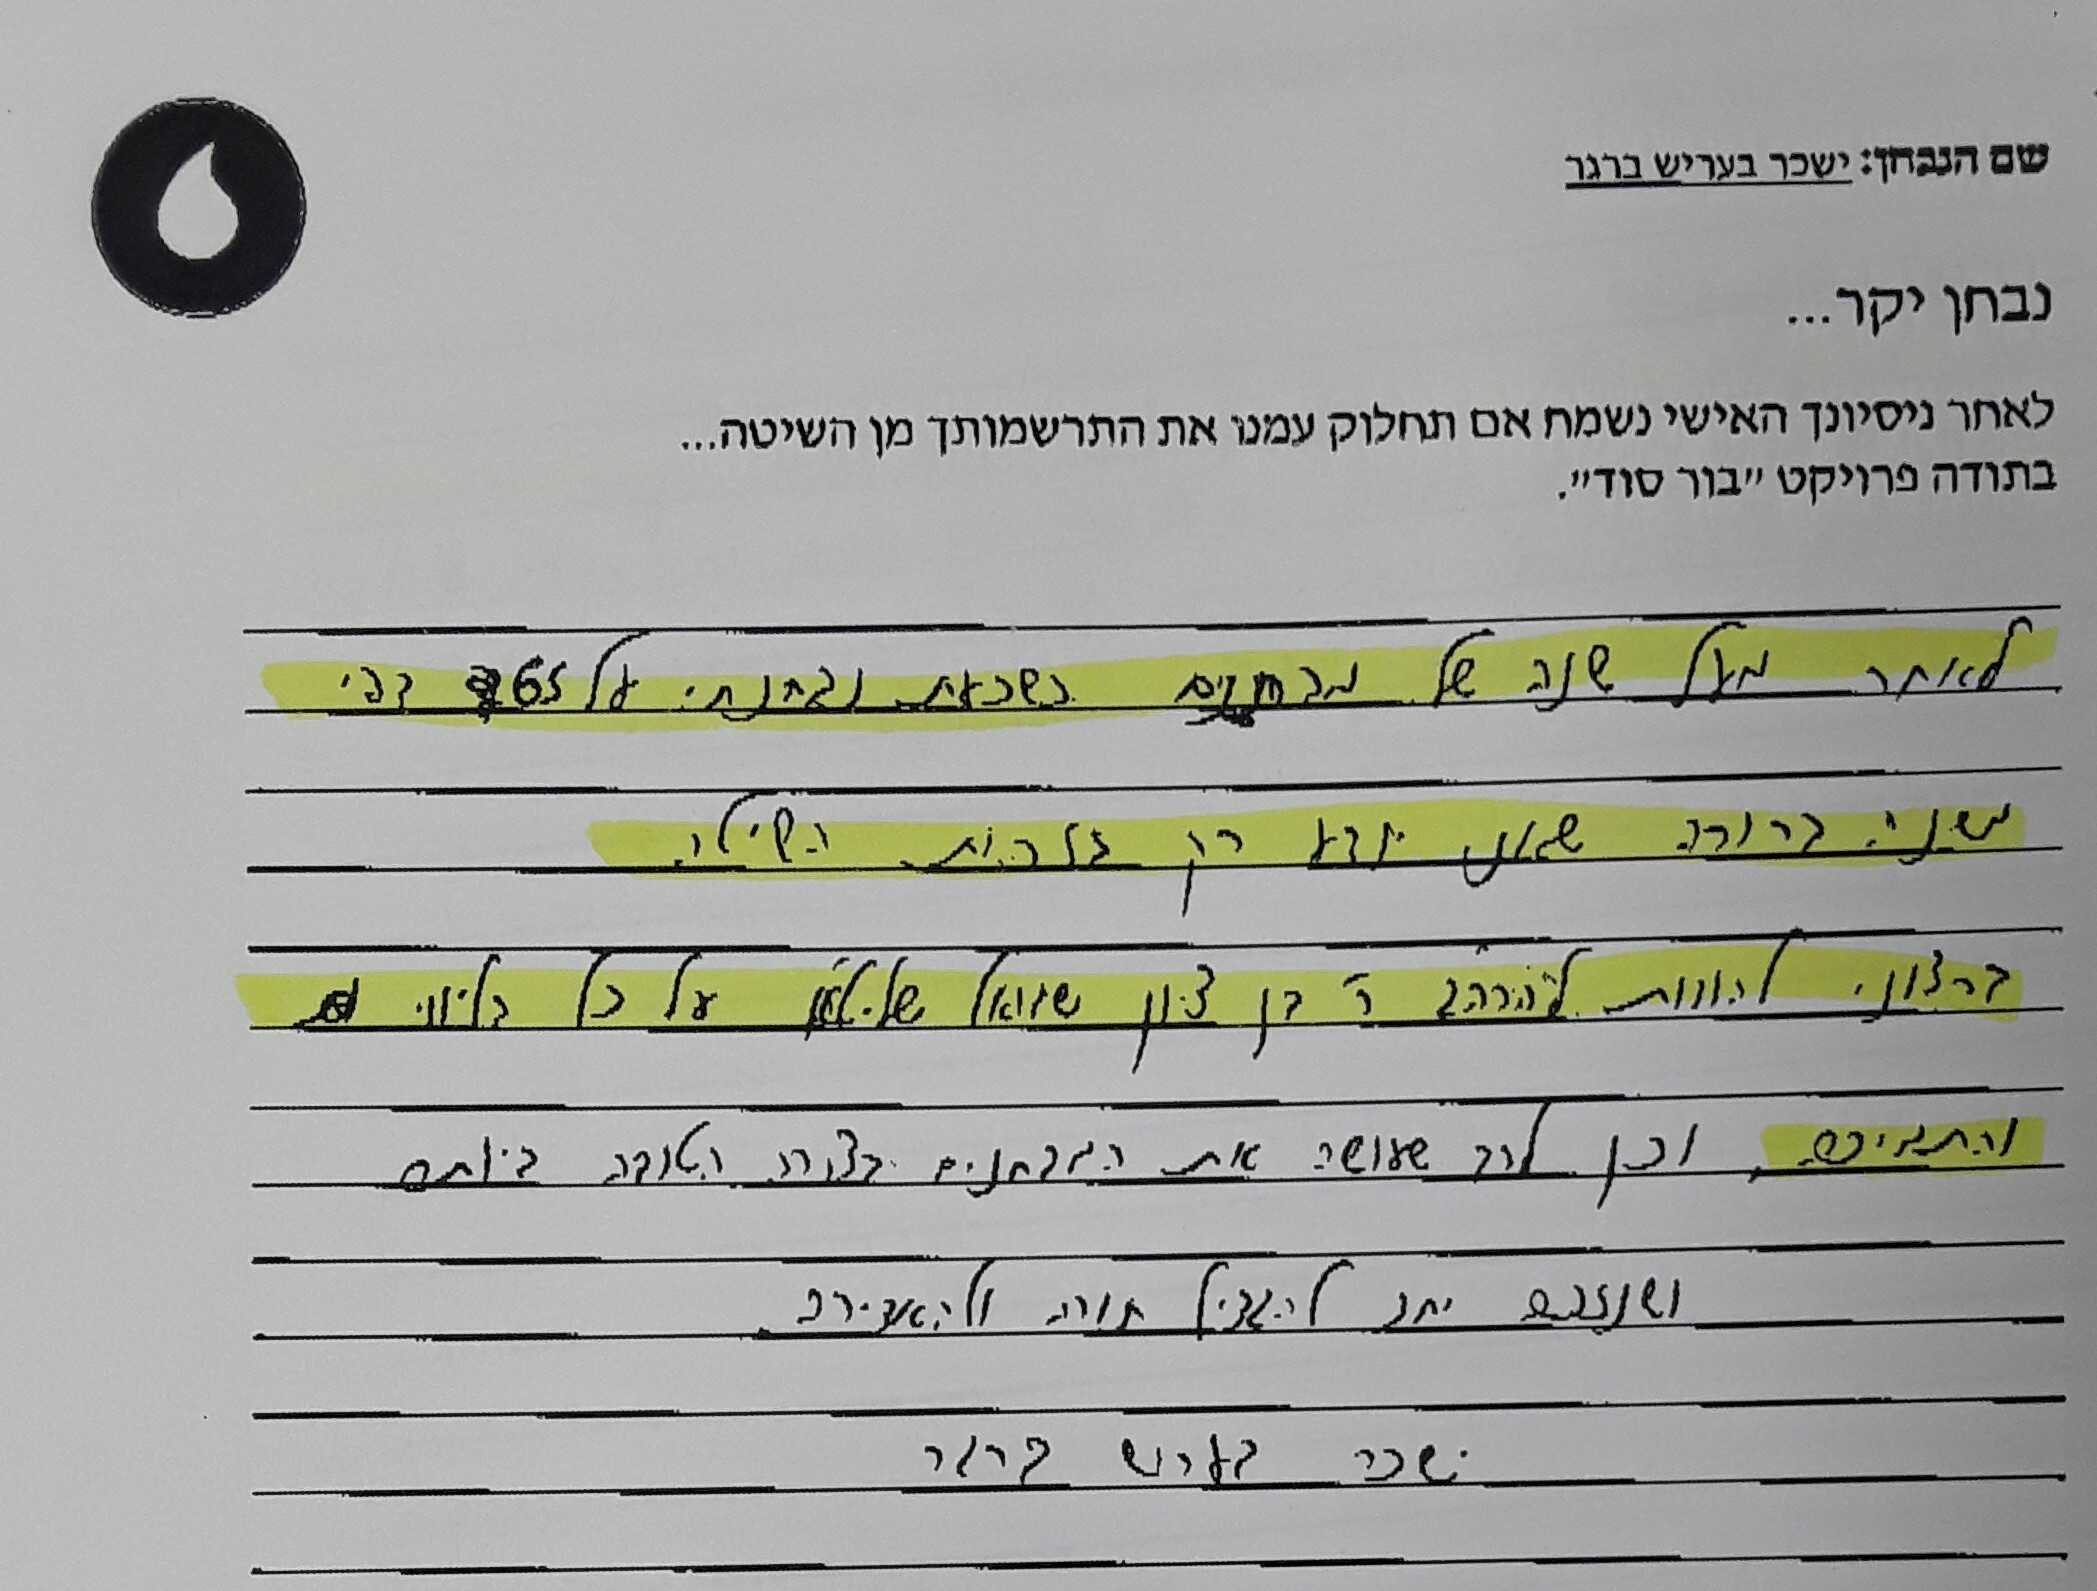 שם הנבחן: ישכר בעריש ברגר
נבחן יקר...
לאחר ניסיונך האישי נשמח אם תחלוק עמנו את התרשמותך מן השיטה...
בתודה פרויקט "בור סוד".
לאחר מעל שנה של מבחנים כשכעת נבחנתי על 265 דפי
משני ברורה שאני יודע רק בזכות השיטה
ברצוני להודות להרה"ג ר' בן ציון שמואל שליט"א על כל הליווי
והתמיכה, וכן לרב שעושה את המבחנים בצורה הטובה ביותר
ושנזכה יחד להגדיל תורה ולהאדירה
ישכר בעריש ברגר